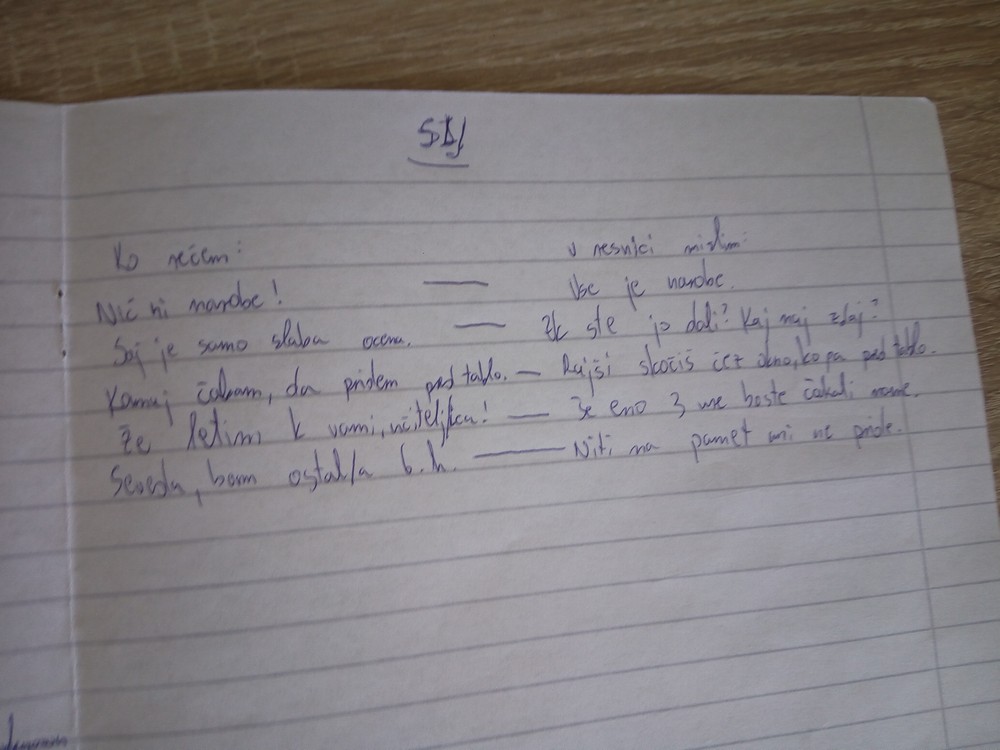 SLJ
Ko rečem: v resnici mislim:
Nič ni narobe! — Vse je narobe.
Saj je samo slaba ocena. — Zk ste jo dali? Kaj naj zdaj?
Komaj čakam, da pridem pred tablo. — Rajši skočiš čez okno, ko pa pred tablo.
Že letim k vami, učiteljica! — Še eno 3 ure boste čakali name.
Seveda, bom ostal/a 6.h. — Niti na pamet mi ne pride.